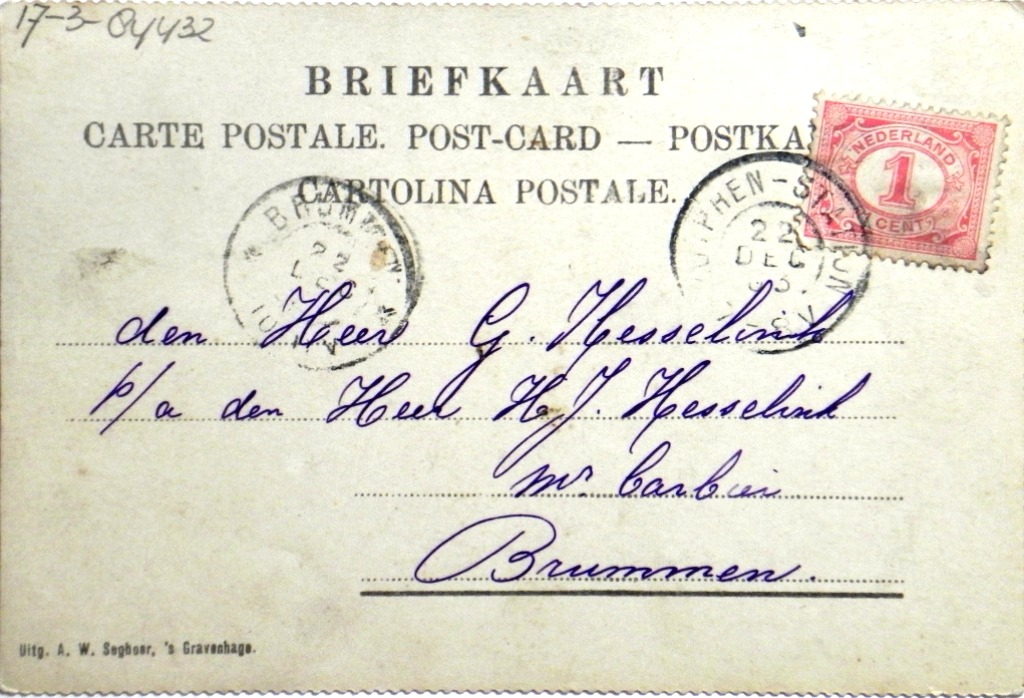 17-3-04432
BRIEFKAART
CARTE POSTALE. POST-CARD — POSTKA
CARTOLINA POSTALE.
NEDERLAND
1
CENT
BRUMMEN
22
PHEN-STA
22
DEC
03.
den Heer G. Hesselink
p/a den Heer H.J. Hesselink
Mr Barbier
Brummen.
Uitg. A. W. Segboer, 's Gravenhage.